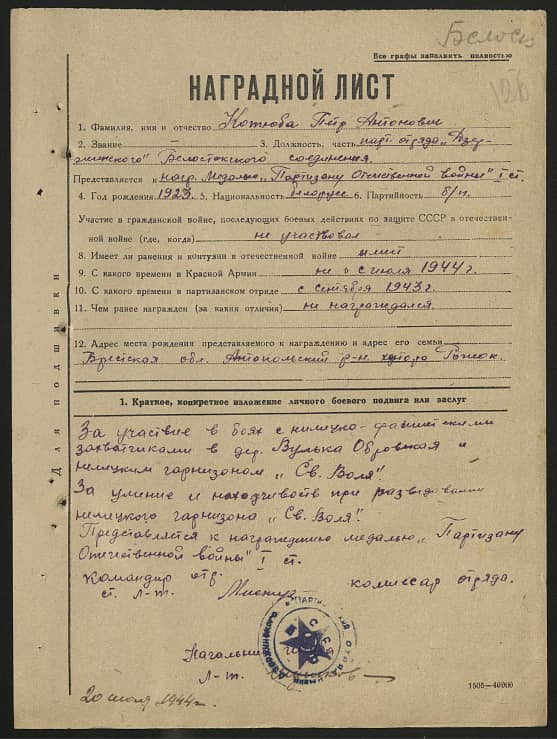 Белос
Все графы заполнить полностью
126
НАГРАДНОЙ ЛИСТ
1. Фамилия, имя и отчество Котюба Пётр Антонович
2. Звание — 3. Должность, часть парт. отряда „Дзер-
жинского" Белостокского соединения.
Представляется к нагр. Медалью „Партизану Отечественной войны" I ст.
4. Год рождения 1923. 5. Национальность белорус 6. Партийность б/п.
Участие в гражданской войне, последующих боевых действиях по защите СССР в отечествен-
ной войне (где, когда) не участвовал
8. Имеет ли ранения и контузии в отечественной войне
9. С какого времени в Красной Армии не с июля 1944 г.
10. С какого времени в партизанском отряде с сентября 1943 г.
11. Чем ранее награжден (за какия отличия) не награждался
12. Адрес места рождения представляемого к награждению и адрес его семьи
Брестская обл. Антопольский р-н. хутора
Для подшивки
1. Краткое, конкретное изложение личного боевого подвига или заслуг
За участие в боях с немецко-фашистскими
захватчиками в дер. Вулька Обровская и
немецким гарнизоном „Св. Воля".
За умение и находчивость при разведовании
немецкого гарнизона „Св. Воля".
Представляется к награждению медалью „Партизану
Отечественной войны" I ст.
Командир отр. комиссар отряда.
ст. л-т.
Начальник
Л-т.
20 июля 1944 г.
1505—40000